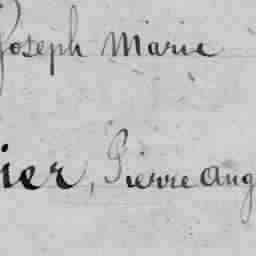 Joseph Marie
ier, Pierre Aug